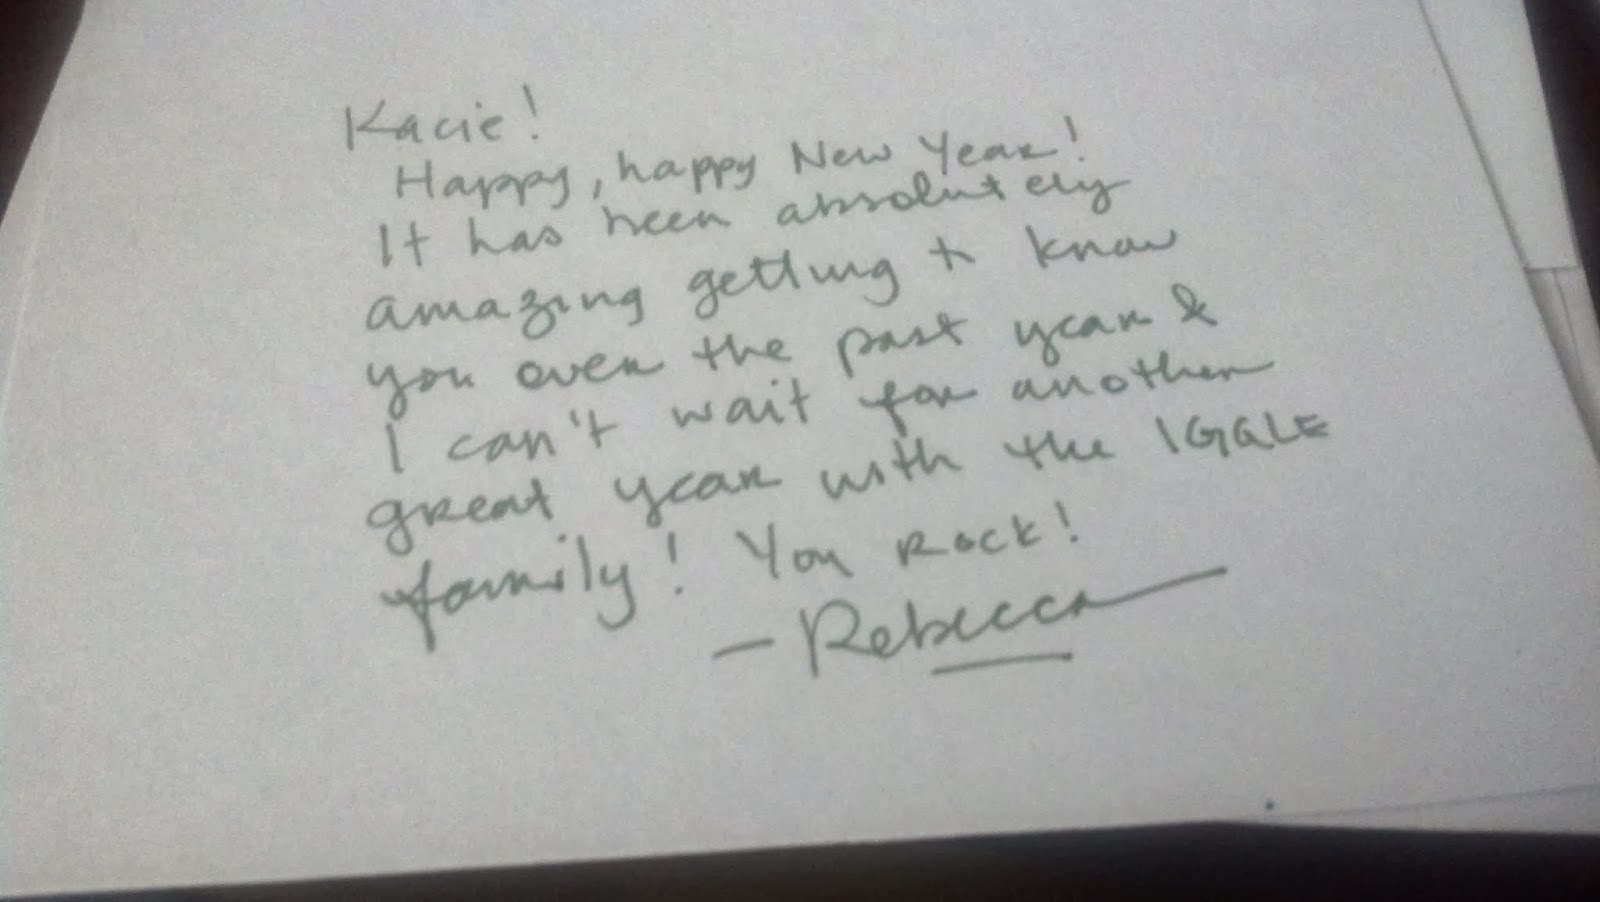 Kacie!
Happy, happy New Year!
It has been absolutely
amazing getting to know
you over the past year &
I can't wait for another
great year with the IGGLE
family! You Rock!
- Rebecca